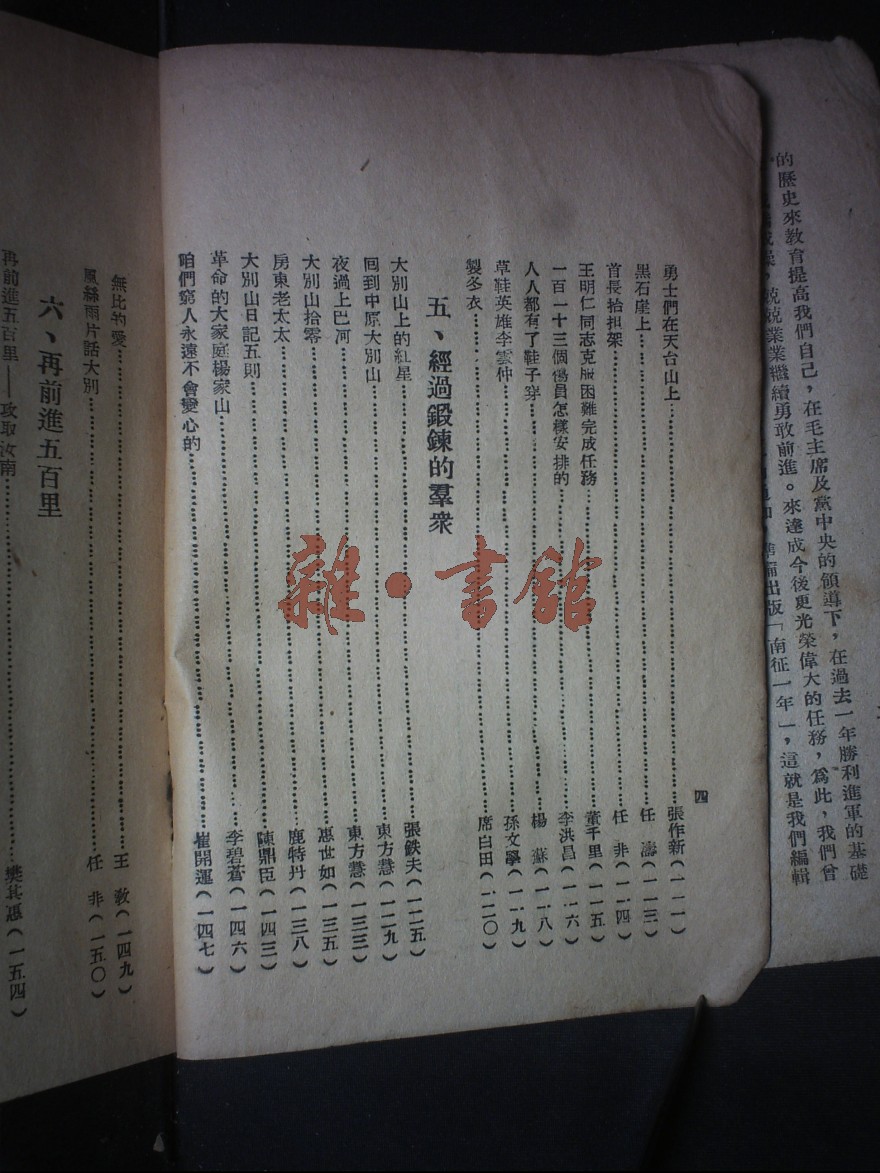 的歷史來教育提高我們自己，在毛主席及黨中央的領導下，在過去一年勝利進軍的基礎
兢兢業業繼續勇敢前進。來達成今後更光榮偉大的任務，爲此，我們曾
出版「南征一年」，這就是我們編輯
四
勇士們在天台山上…………張作新（一一一）
黑石崖上…………任　濤（一一三）
首長抬担架…………任　非（一一四）
王明仁同志克服困難完成任務…………董千里（一一五）
一百一十三個傷員怎樣安排的…………李洪昌（一一六）
人人都有了鞋子穿…………楊　蘇（一一八）
草鞋英雄李雲仲…………孫文學（一一九）
製冬衣…………席白田（一二〇）
五、經過鍛鍊的羣衆
大別山上的紅星…………張鉄夫（一二五）
回到中原大別山…………東方慧（一二九）
夜過上巴河…………東方慧（一三三）
大別山拾零…………惠世如（一三五）
房東老太太…………鹿特丹（一三八）
大別山日記五則…………陳鼎臣（一四三）
革命的大家庭楊家山…………李碧蒼（一四六）
咱們窮人永遠不會變心的…………崔開運（一四七）
無比的愛…………王　敎（一四九）
風絲雨片話大別…………任　非（一五〇）
六、再前進五百里
再前進五百里——攻取汝南…………樊其惠（一五四）
雜·書館